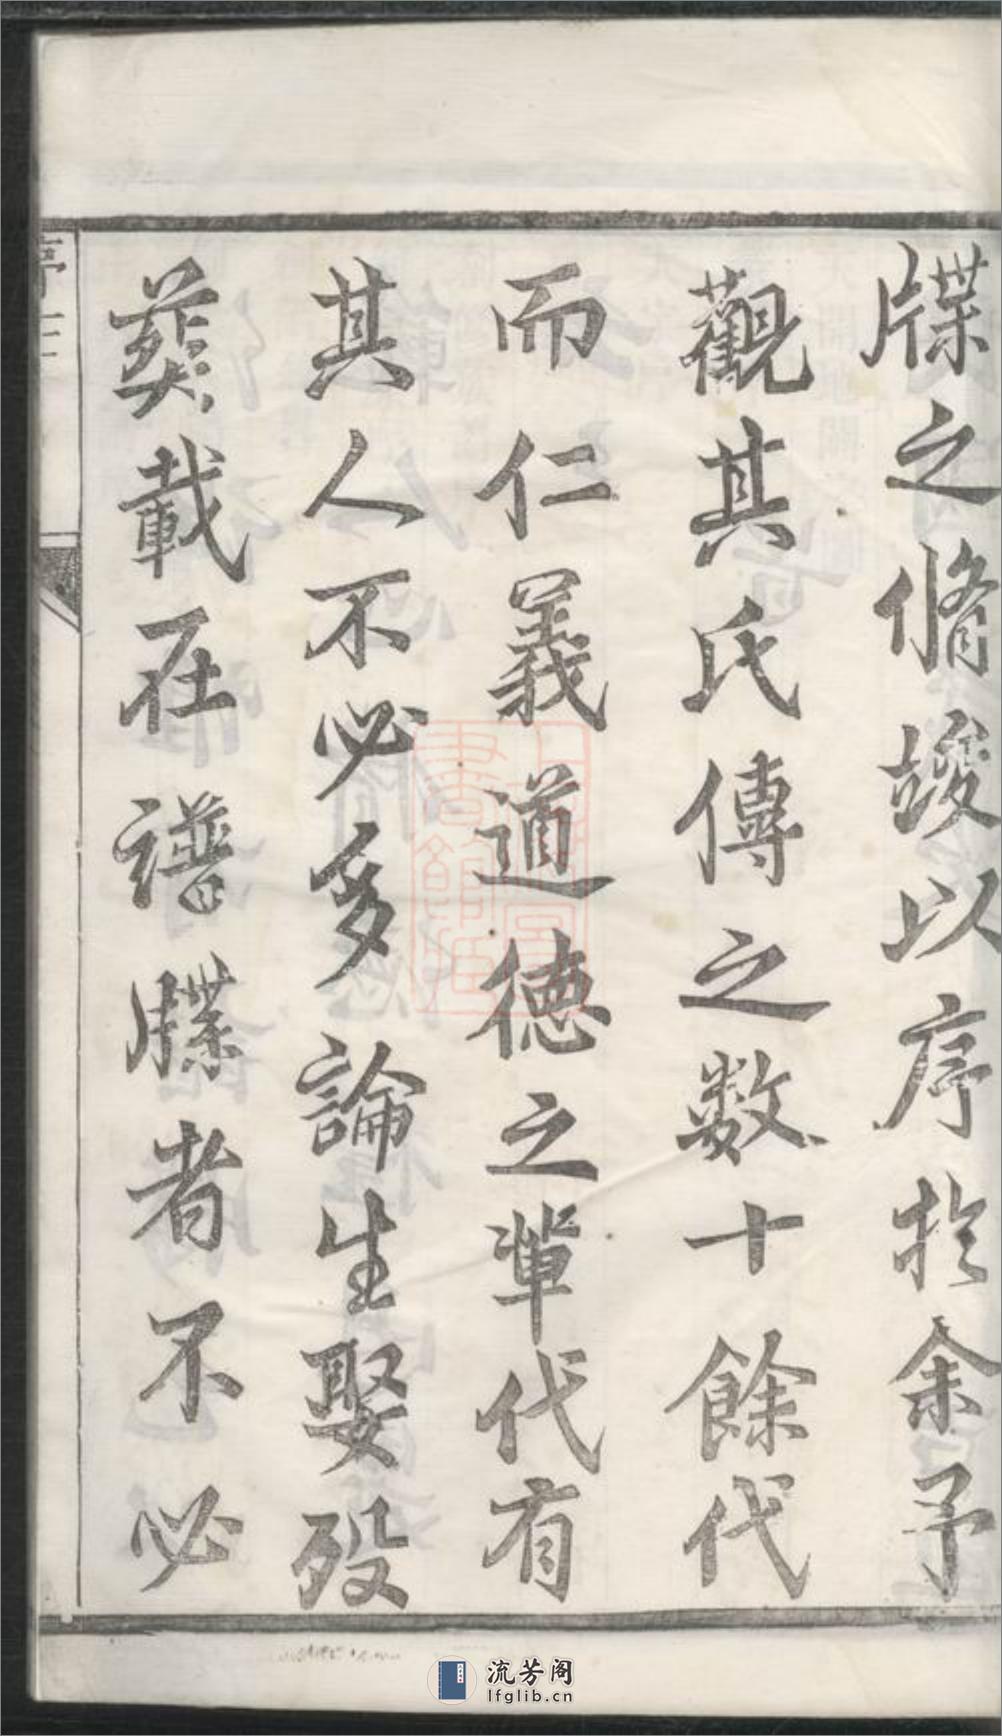 牒之脩竣以序於余予
觀其氏傳之數十餘代
而仁義道德之輩代有
其人不必多論生娶歿
葬載在譜牒者不必
序三
流芳阁
lfglib.cn